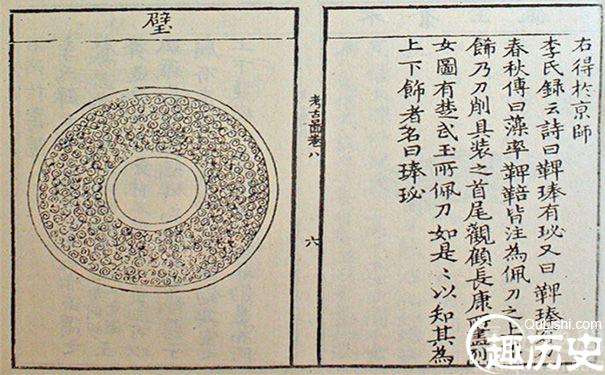 右得扵京師
李氏録云詩曰鞞琫有珌又曰鞞琫刀
春秋傳曰藻率鞞鞛皆注為佩刀之上
飾乃刀削具装之首尾觀顧長康畫列
女圖有楚武王所佩刀如是〻以知其為
上下飾者名曰琫珌
考古啚卷八
六
璧
Qulishi.com
趣历史